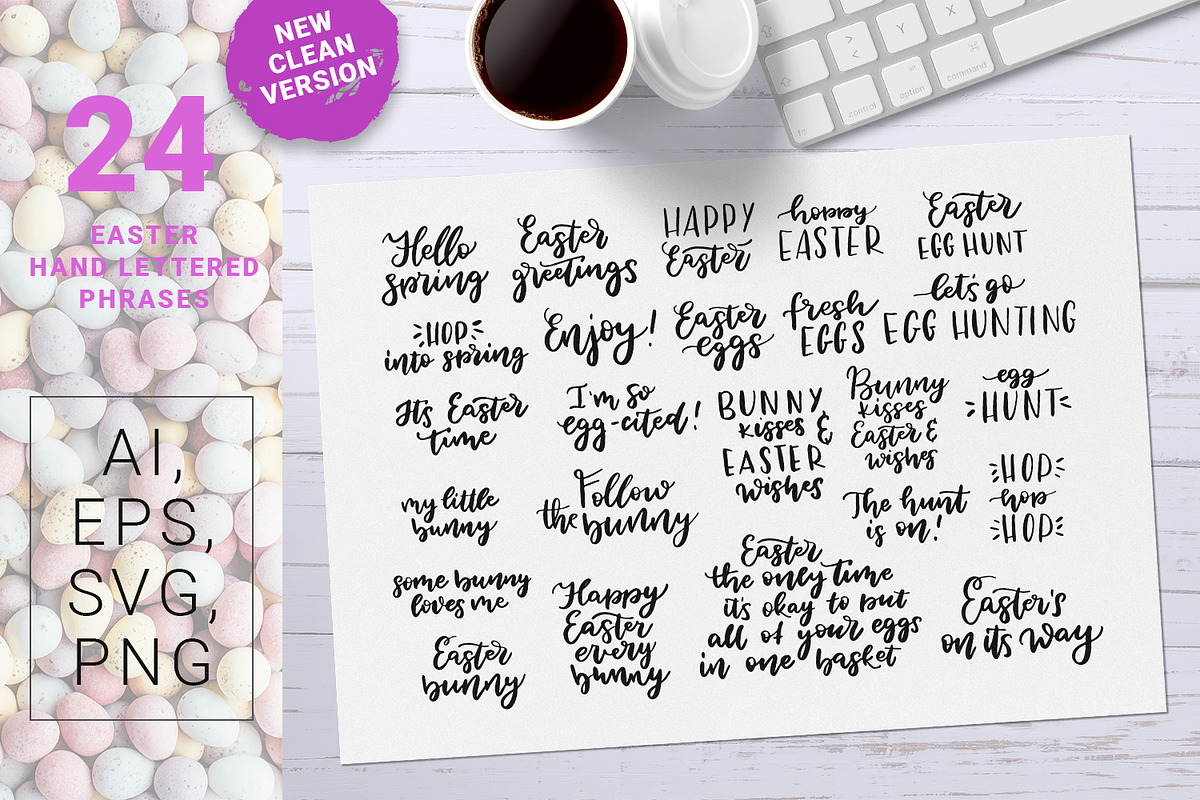 NEW
CLEAN
VERSION
24
EASTER
HAND LETTERED
PHRASES
AI,
EPS,
SVG,
PNG
fn
control
option
command
>
<
Y
X
Hello
spring
Easter
greetings
HAPPY
Easter
hoppy
EASTER
Easter
EGG HUNT
HOP
into spring
Enjoy!
Easter
eggs
fresh
EGGS
let's go
EGG HUNTING
It's Easter
time
I'm so
egg-cited!
BUNNY
kisses &
EASTER
wishes
Bunny
kisses
Easter &
wishes
egg
HUNT
my little
bunny
Follow
the bunny
The hunt
is on!
HOP
hop
HOP
some bunny
loves me
Happy
Easter
every
bunny
Easter
the only time
it's okay to put
all of your eggs
in one basket
Easter's
on its way
Easter
bunny